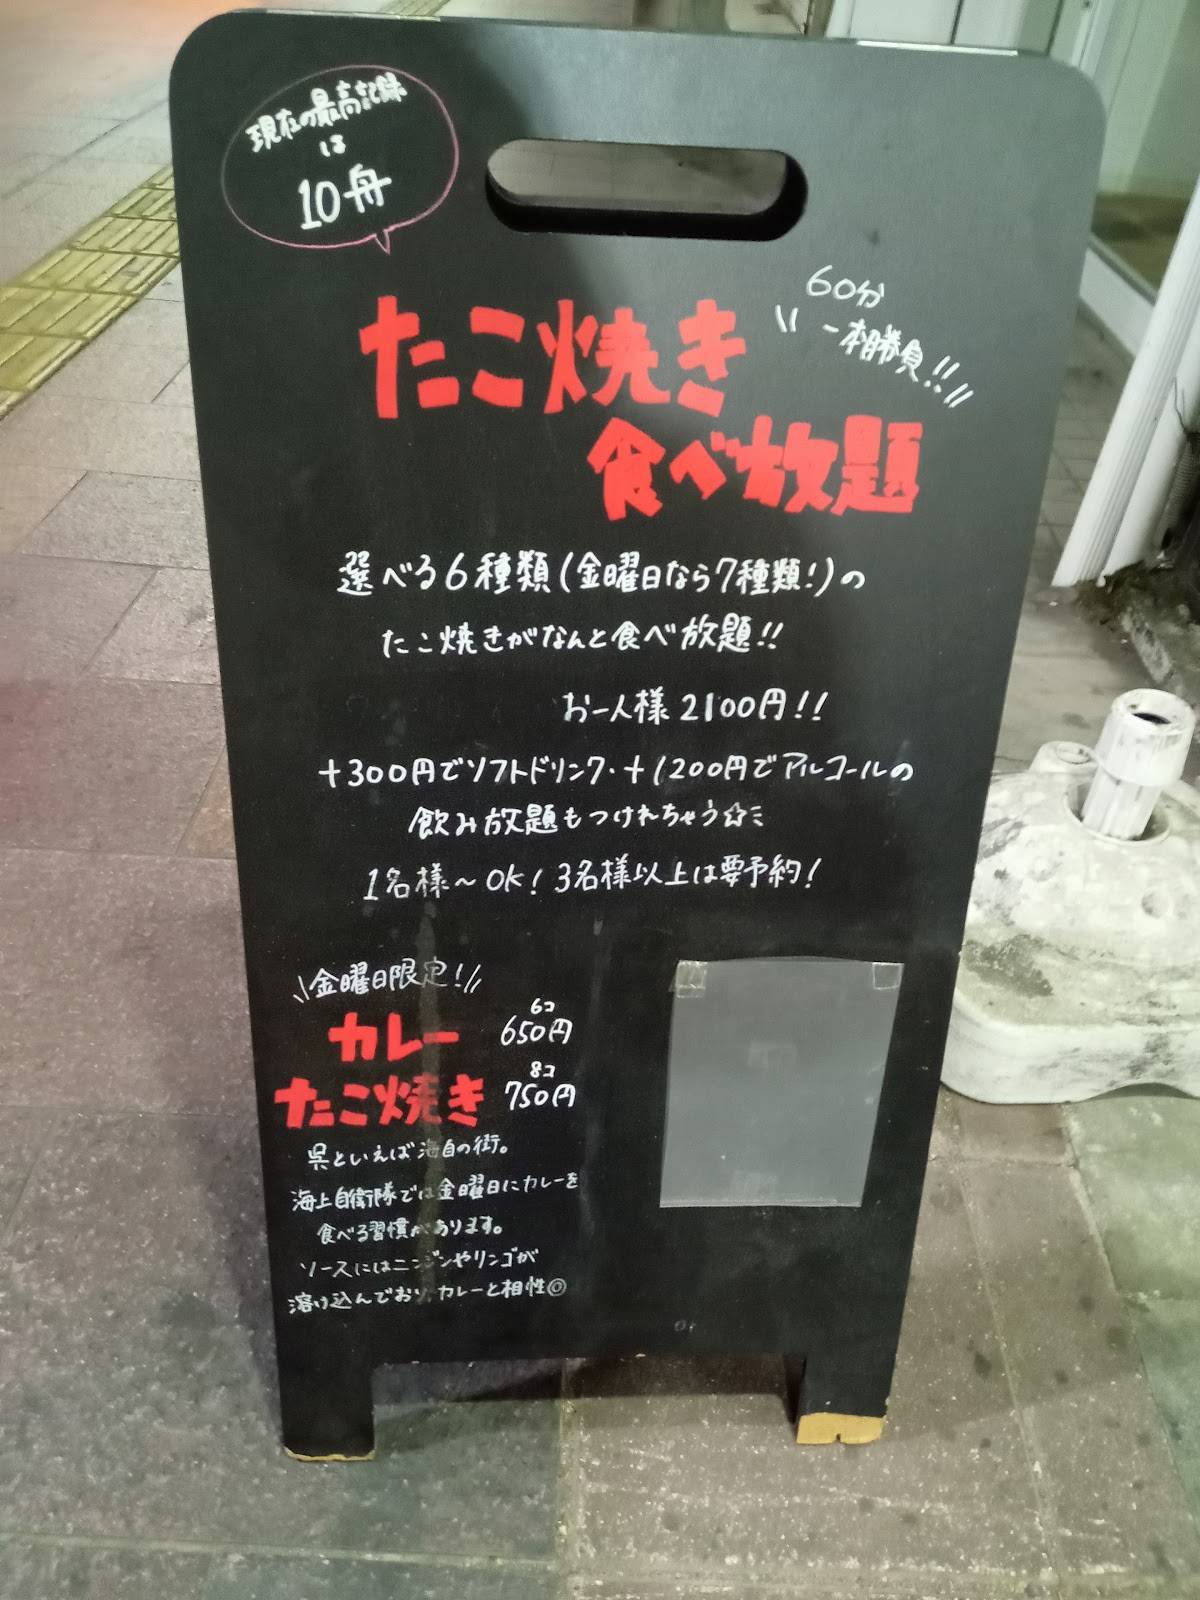 現在の最高記録
は
10舟
60分
一本勝負!!
たこ焼き
食べ放題
選べる6種類(金曜日なら7種類!)の
たこ焼きがなんと食べ放題!!
お一人様2100円!!
+300円でソフトドリンク・+1200円でアルコールの
飲み放題もつけれちゃう☆ミ
1名様〜OK!3名様以上は要予約!
\金曜日限定!/
カレー
たこ焼き
6コ
650円
8コ
750円
呉といえば海自の街。
海上自衛隊では金曜日にカレーを
食べる習慣があります。
ソースにはニンジンやリンゴが
溶け込んでおり、カレーと相性◎